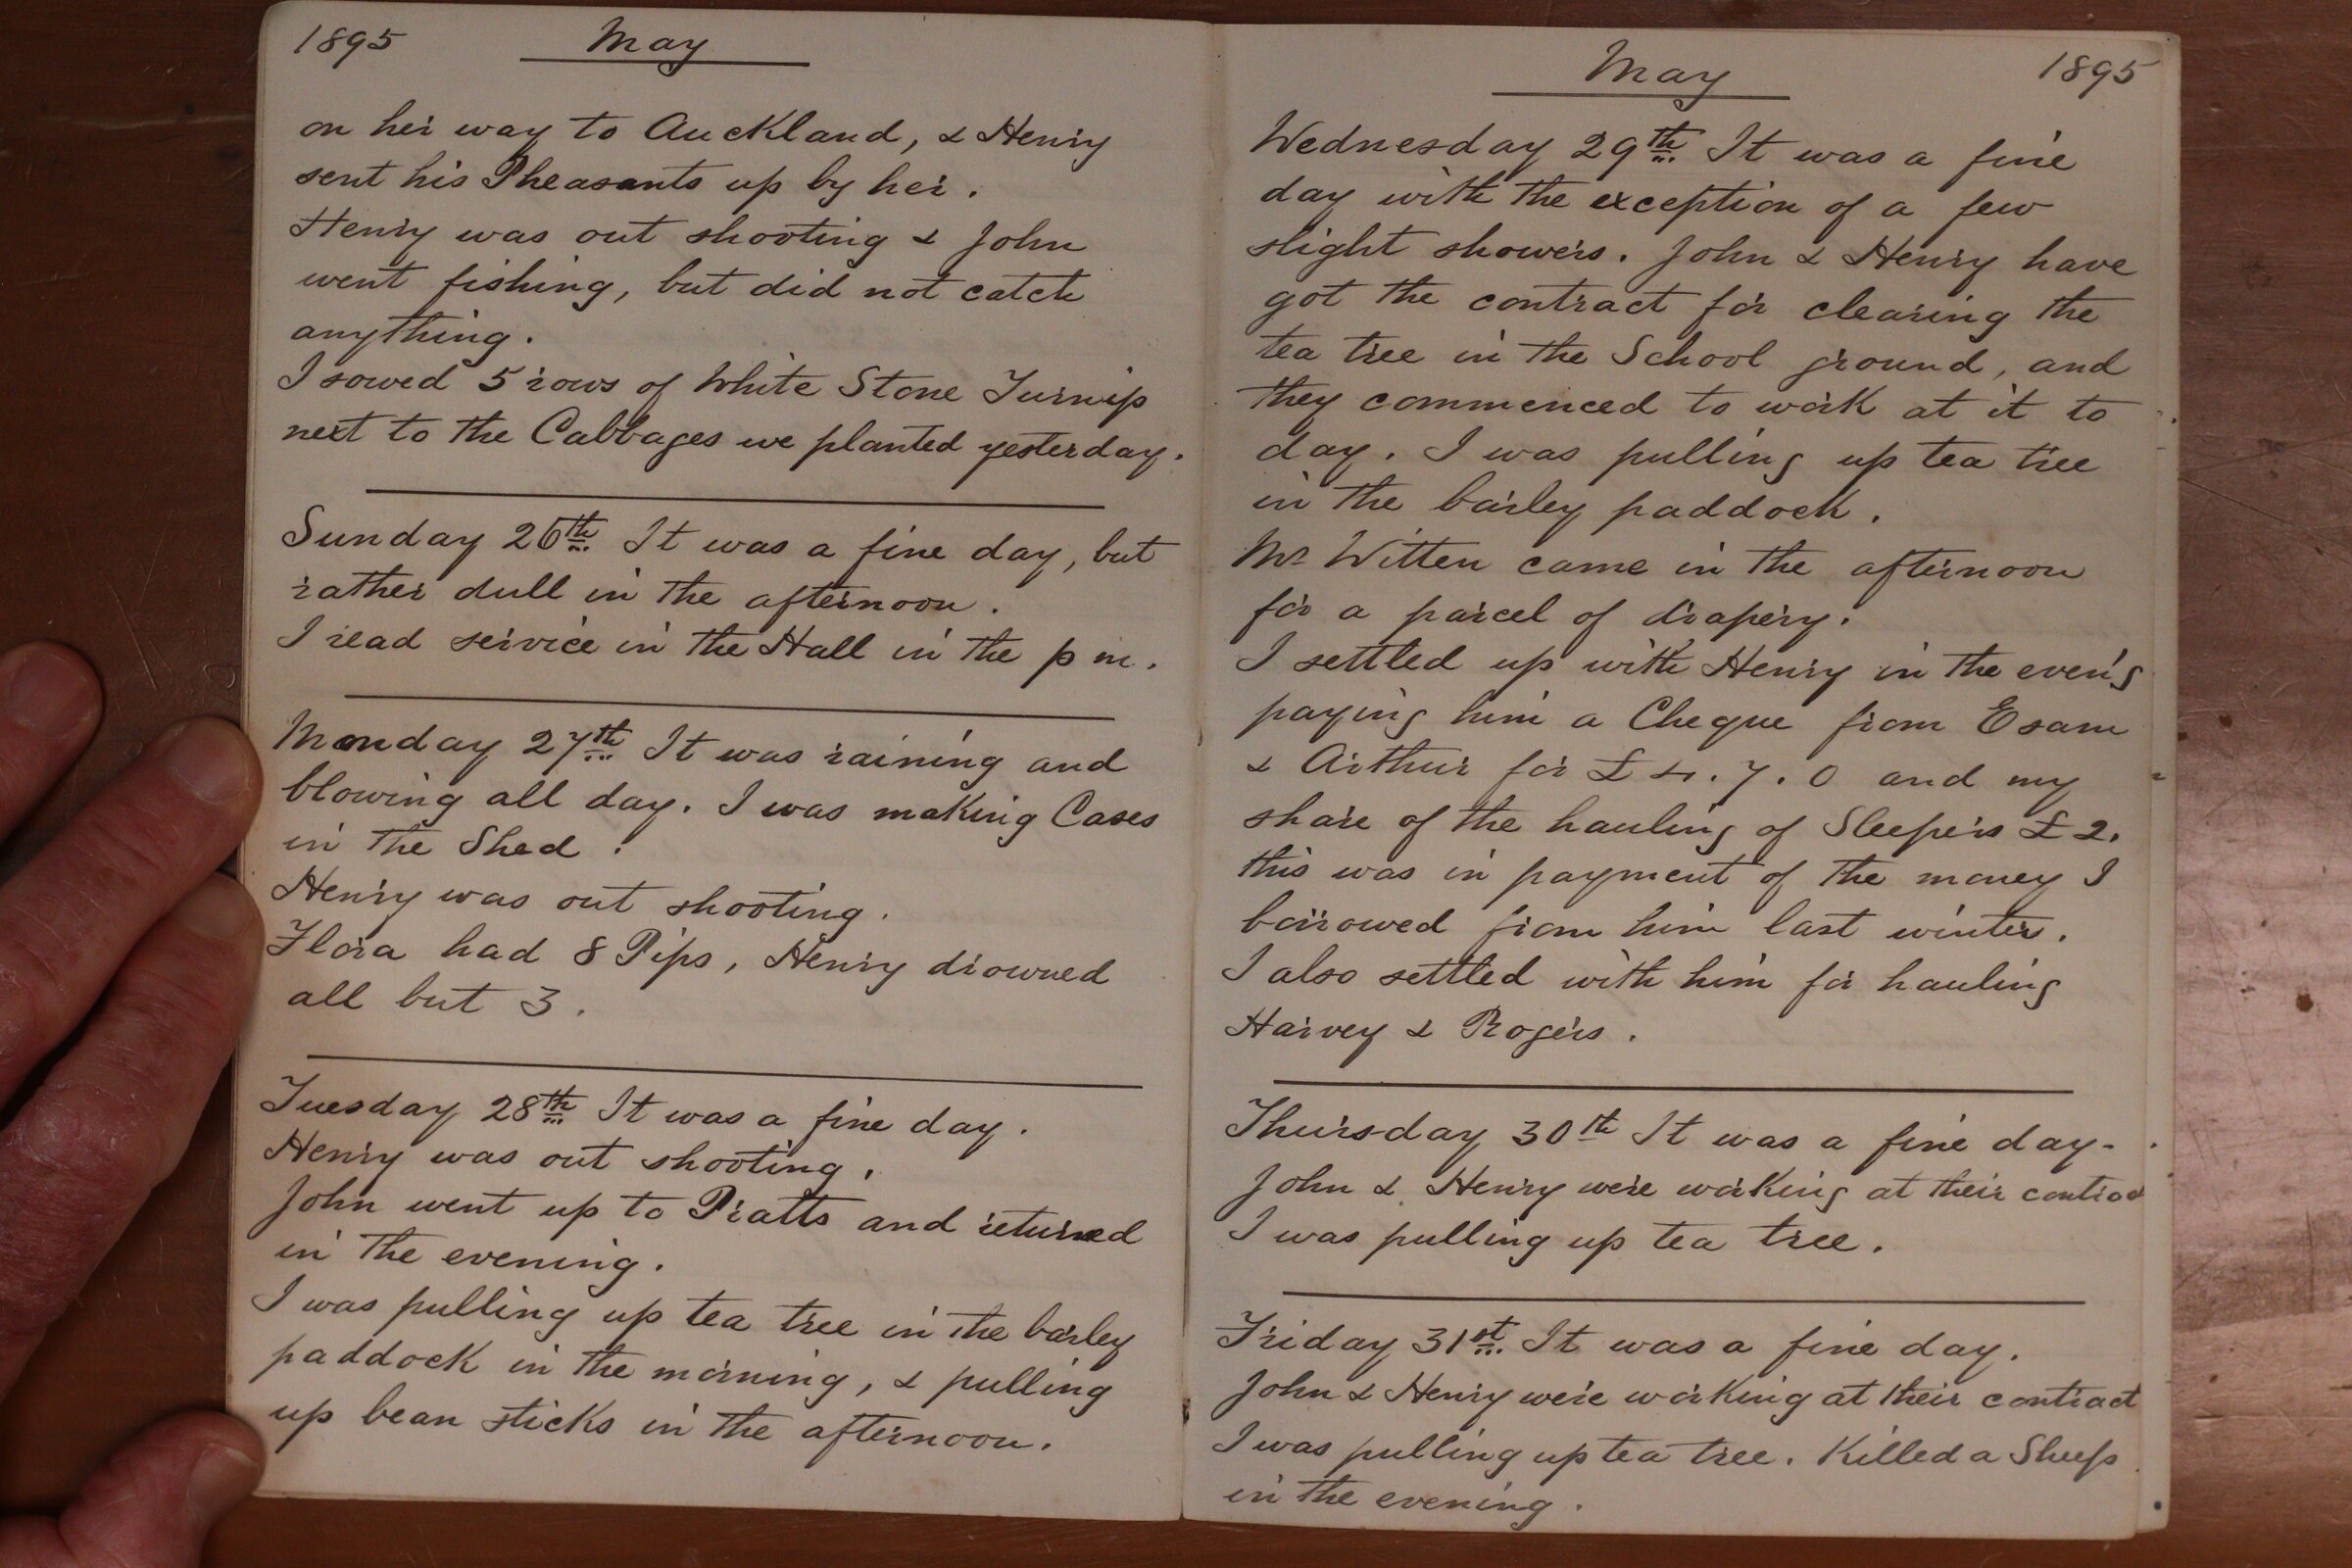 1895 May
on her way to Auckland, & Henry
sent his Pheasants up by her.
Henry was out shooting & John
went fishing, but did not catch
anything.
I sowed 5 rows of White Stone Turnip
next to the Cabbages we planted yesterday.
Sunday 26th It was a fine day, but
rather dull in the afternoon.
I read service in the Hall in the p m.
Monday 27th It was raining and
blowing all day. I was making Cases
in the Shed.
Henry was out shooting.
Flora had 8 Pips, Henry drowned
all but 3.
Tuesday 28th It was a fine day.
Henry was out shooting,
John went up to Pratts and returned
in the evening.
I was pulling up tea tree in the barley
paddock in the morning, & pulling
up bean sticks in the afternoon.
May 1895
Wednesday 29th It was a fine
day with the exception of a few
slight showers. John & Henry have
got the contract for clearing the
tea tree in the School ground, and
they commenced to work at it to
day. I was pulling up tea tree
in the barley paddock.
Mr Witten came in the afternoon
for a parcel of drapery.
I settled up with Henry in the even'g
paying him a Cheque from Esam
& Arthur for £4.7.0 and my
share of the hauling of Sleepers £2.
this was in payment of the money I
borrowed from him last winter.
I also settled with him for hauling
Harvey & Rogers.
Thursday 30th It was a fine day-
John & Henry were working at their contrac
I was pulling up tea tree.
Friday 31st It was a fine day.
John & Henry were working at their contract
I was pulling up tea tree. Killed a Sheep
in the evening.